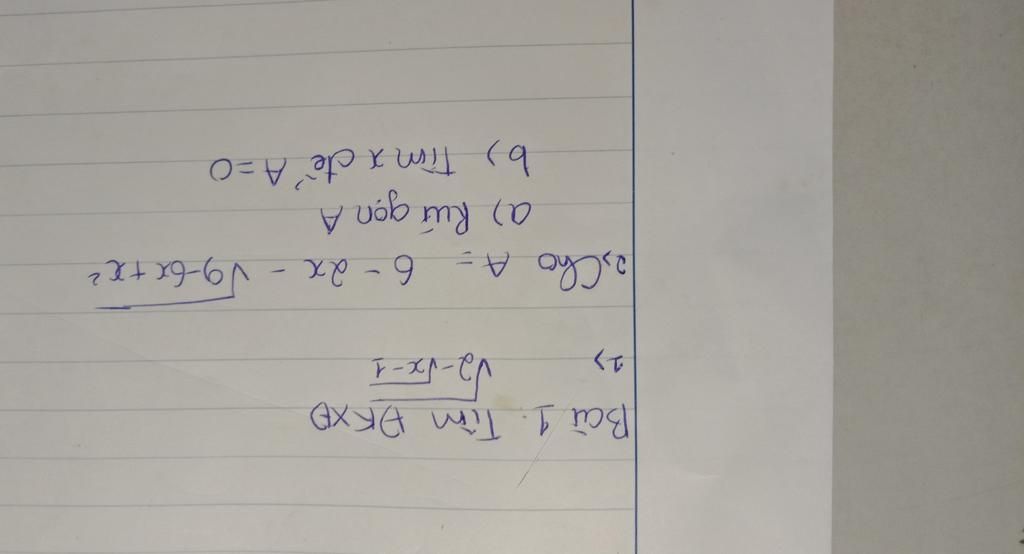 Bài 1. Tìm ĐKXĐ
1, √2-√x-1
2, Cho A = 6 - 2x - √9-6x+x²
a) Rút gọn A
b) Tìm x để A=0